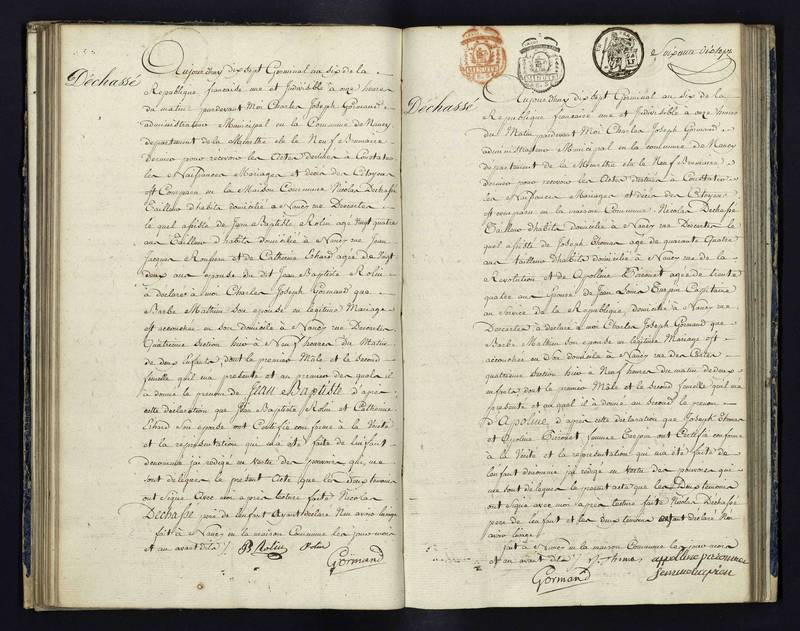 Déchassé
Aujourd'huy dix sept Germinal an six de la
Republique française une et Indivisible à onze heures
du matin pardevant Moi Charles Joseph Gormand
administrateur Municipal en la Commune de Nancy
département de la Meurthe elu le Neuf Brumaire
dernier pour recevoir les Actes destinés à Constater
les Naissances Mariages et decès des Citoyens
est Comparu en la Maison Commune Nicolas Dechassé
Tailleur d'habits domicilié à Nancy rue Descartes
le quel assisté de Jean Baptiste Rolin agé Vingt quatre
ans Tailleur d'habits domicilié à Nancy rue Jean
Jacques Rousseau et de Catherine Erhard agée de Vingt
deux ans epouse du dit Jean Baptiste Rolin
à déclaré à moi Charles Joseph Gormand que
Barbe Mathieu son epouse en légitime Mariage
est accouchée en son domicile à Nancy rue Descartes
quatrième Section hier à Neuf heures du Matin
de deux Enfants, dont le premier Mâle et le Second
femelle qu'il m'a présenté et au premier des quels il
a donné le prenom de Jean Baptiste d'après
cette déclaration que Jean Baptiste Rolin et Catherine
Erhard Son epouse ont Certifié conforme à la Vérité
et la représentation qui m'a été faite de l'enfant
denommé j'ai rédigé en vertu des pouvoirs qui me
sont délégués le présent Acte que les deux temoins
ont Signé Avec moi après lecture faite Nicolas
Dechassé père de l'enfant Ayant déclaré N'en avoir l'usage
fait à Nancy en la maison Commune les jour mois
et an avant dits / B Rolin Rolin
Gormand
MINUTE
MINUTE
Déchassé
Aujourd'huy dix sept Germinal an six de la
Republique française une et Indivisible à onze heures
du Matin pardevant Moi Charles Joseph Gormand
administrateur Municipal en la commune de Nancy
département de la Meurthe elu le Neuf Brumaire
dernier pour recevoir les Actes destinés à Constater
les Naissances Mariages et décès des Citoyens
est comparu en la maison Commune Nicolas Dechassé
Tailleur d'habits domicilié à Nancy rue Descartes le
quel assisté de Joseph Thomas agé de quarante quatre
ans tailleur d'habits domicilié à Nancy rue de la
Revolution et de Apolline agée de trente
quatre ans Epouse de Jean Louis Carpin Capitaine
au Service de la République, domiciliée à Nancy rue
Descartes à déclaré à moi Charles Joseph Gormand que
Barbe Mathieu Son epouse en légitime Mariage est
accouchée en son domicile à Nancy rue Descartes
quatrième Section hier à Neuf heures du matin de deux
enfants, dont le premier Mâle et le Second femelle qu'il m'a
présenté et au quel il à donné au Second le prenom
d'Apoline, d'après cette déclaration que Joseph Thomas
et Apoline femme Carpin ont Certifié conforme
à la Vérité et la représentation qui m'a été faite de
l'enfant denommé j'ai rédigé en vertu des pouvoirs qui
me sont délégués le présent acte que les Deux temoins
ont signé avec moi après lecture faite Nicolas Dechassé
père de l'enfant et les deux temoins ayant déclaré N'en
avoir l'usage
fait à Nancy en la maison Commune les jour mois
et an avant dits / J. Thomas appoline
Gormand femme